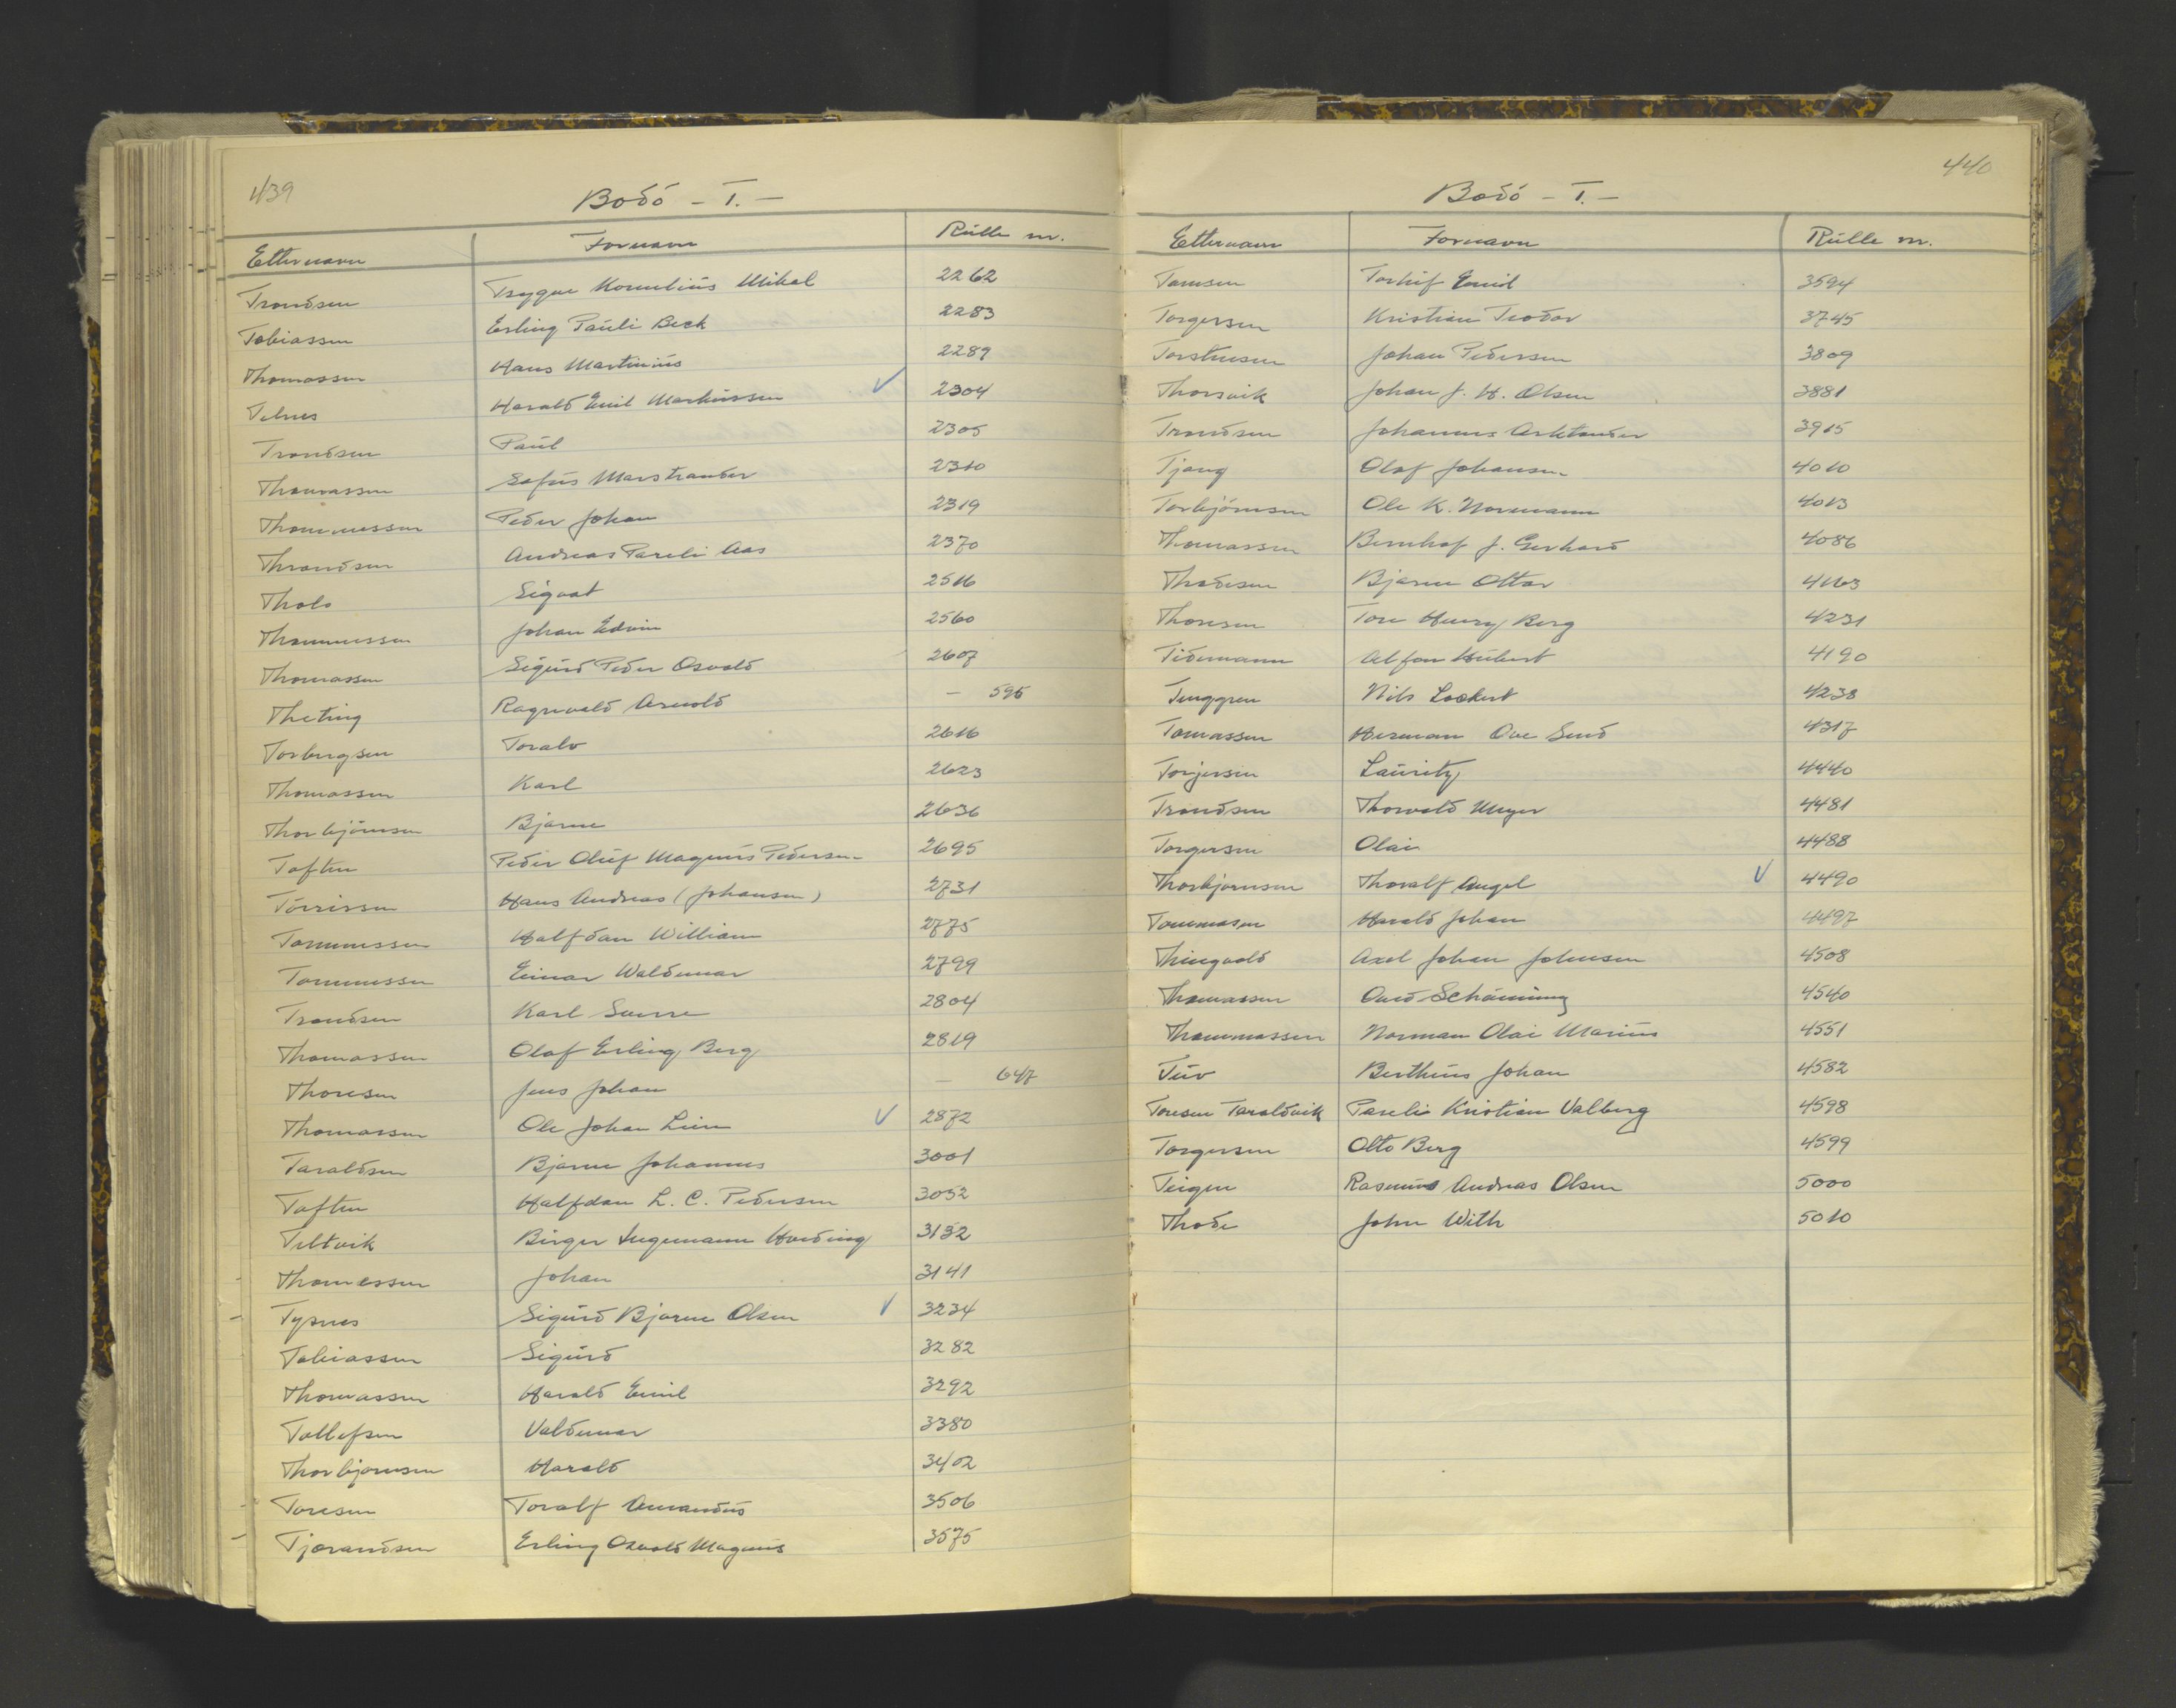 439
Bodó - T. -
Etternavn Fornavn Rulle nr.
Trondsen Trygve Kornelius Mikal 2262
Tobiassen Erling Pauli Beck 2283
Thomassen Hans Martinius 2289
Telnes Harald Emil Markussen ✓ 2304
Trondsen Paul 2305
Thomassen Sofus Marstrander 2310
Thommessen Peder Johan 2319
Throndsen Andreas Pareli Aas 2370
Tholo Sigvat 2516
Thommessen Johan Edvin 2560
Thomassen Sigurd Peder Osvald 2607
Theting Ragnvald Arnold - 596
Torbergsen Toralv 2616
Thomassen Karl 2623
Thorbjörnsen Bjarne 2636
Toften Peder Oluf Magnus Pedersen 2695
Tórrissen Hans Andreas (Johansen) 2731
Tommessen Halfdan William 2775
Tommessen Einar Waldemar 2799
Trondsen Karl Sverre 2804
Thomassen Olaf Erling Berg 2819
Thoresen Jens Johan - 647
Thomassen Ole Johan Lien ✓ 2872
Taraldsen Bjarne Johannes 3001
Toften Halfdan L. C. Pedersen 3052
Teltvik Birger Ingemann Harding 3132
Thomessen Johan 3141
Tysnes Sigurd Bjarne Olsen ✓ 3234
Tobiassen Sigurd 3282
Thomassen Harald Emil 3292
Tollefsen Valdemar 3380
Thorbjornsen Harald 3402
Toresen Toralf Amandus 3506
Tjærandsen Erling Osvald Magnus 3575
440
Bodó - T. -
Etternavn Fornavn Rulle nr.
Tomsen Torleif Emil 3594
Torgersen Kristian Teodor 3745
Torstensen Johan Pedersen 3809
Thorsvik Johan J. H. Olsen 3881
Trondsen Johannes Arktander 3915
Tjong Olaf Johansen 4010
Torbjörnsen Ole K. Normann 4013
Thomassen Bernhof J. Gerhard 4086
Thodesen Bjarne Ottar 4163
Thoresen Tore Henry Berg 4231
Tidemann Alfon Hubert 4190
Tenggren Nils Lockert 4238
Tomassen Herman Ove Send 4317
Torjersen Lauritz 4440
Trondsen Thorvald Meyer 4481
Torgersen Olai 4488
Thorbjornsen Thoralf Angel ✓ 4490
Tommasen Harald Johan 4497
Thingvold Axel Johan Johnsen 4508
Thomassen Ovid Schönning 4540
Thommassen Norman Olai Marius 4551
Tuv Bertheus Johan 4582
Toresen Taraldsvik Pareli Kristian Valberg 4598
Torgersen Otto Berg 4599
Teigen Rasmus Andreas Olsen 5000
Thode John With 5010